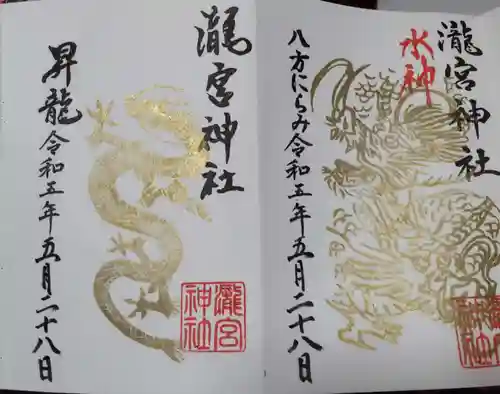 瀧宮神社
昇龍
令和五年五月二十八日
瀧宮
神社
水神
瀧宮神社
八方にらみ
令和五年五月二十八日
神社